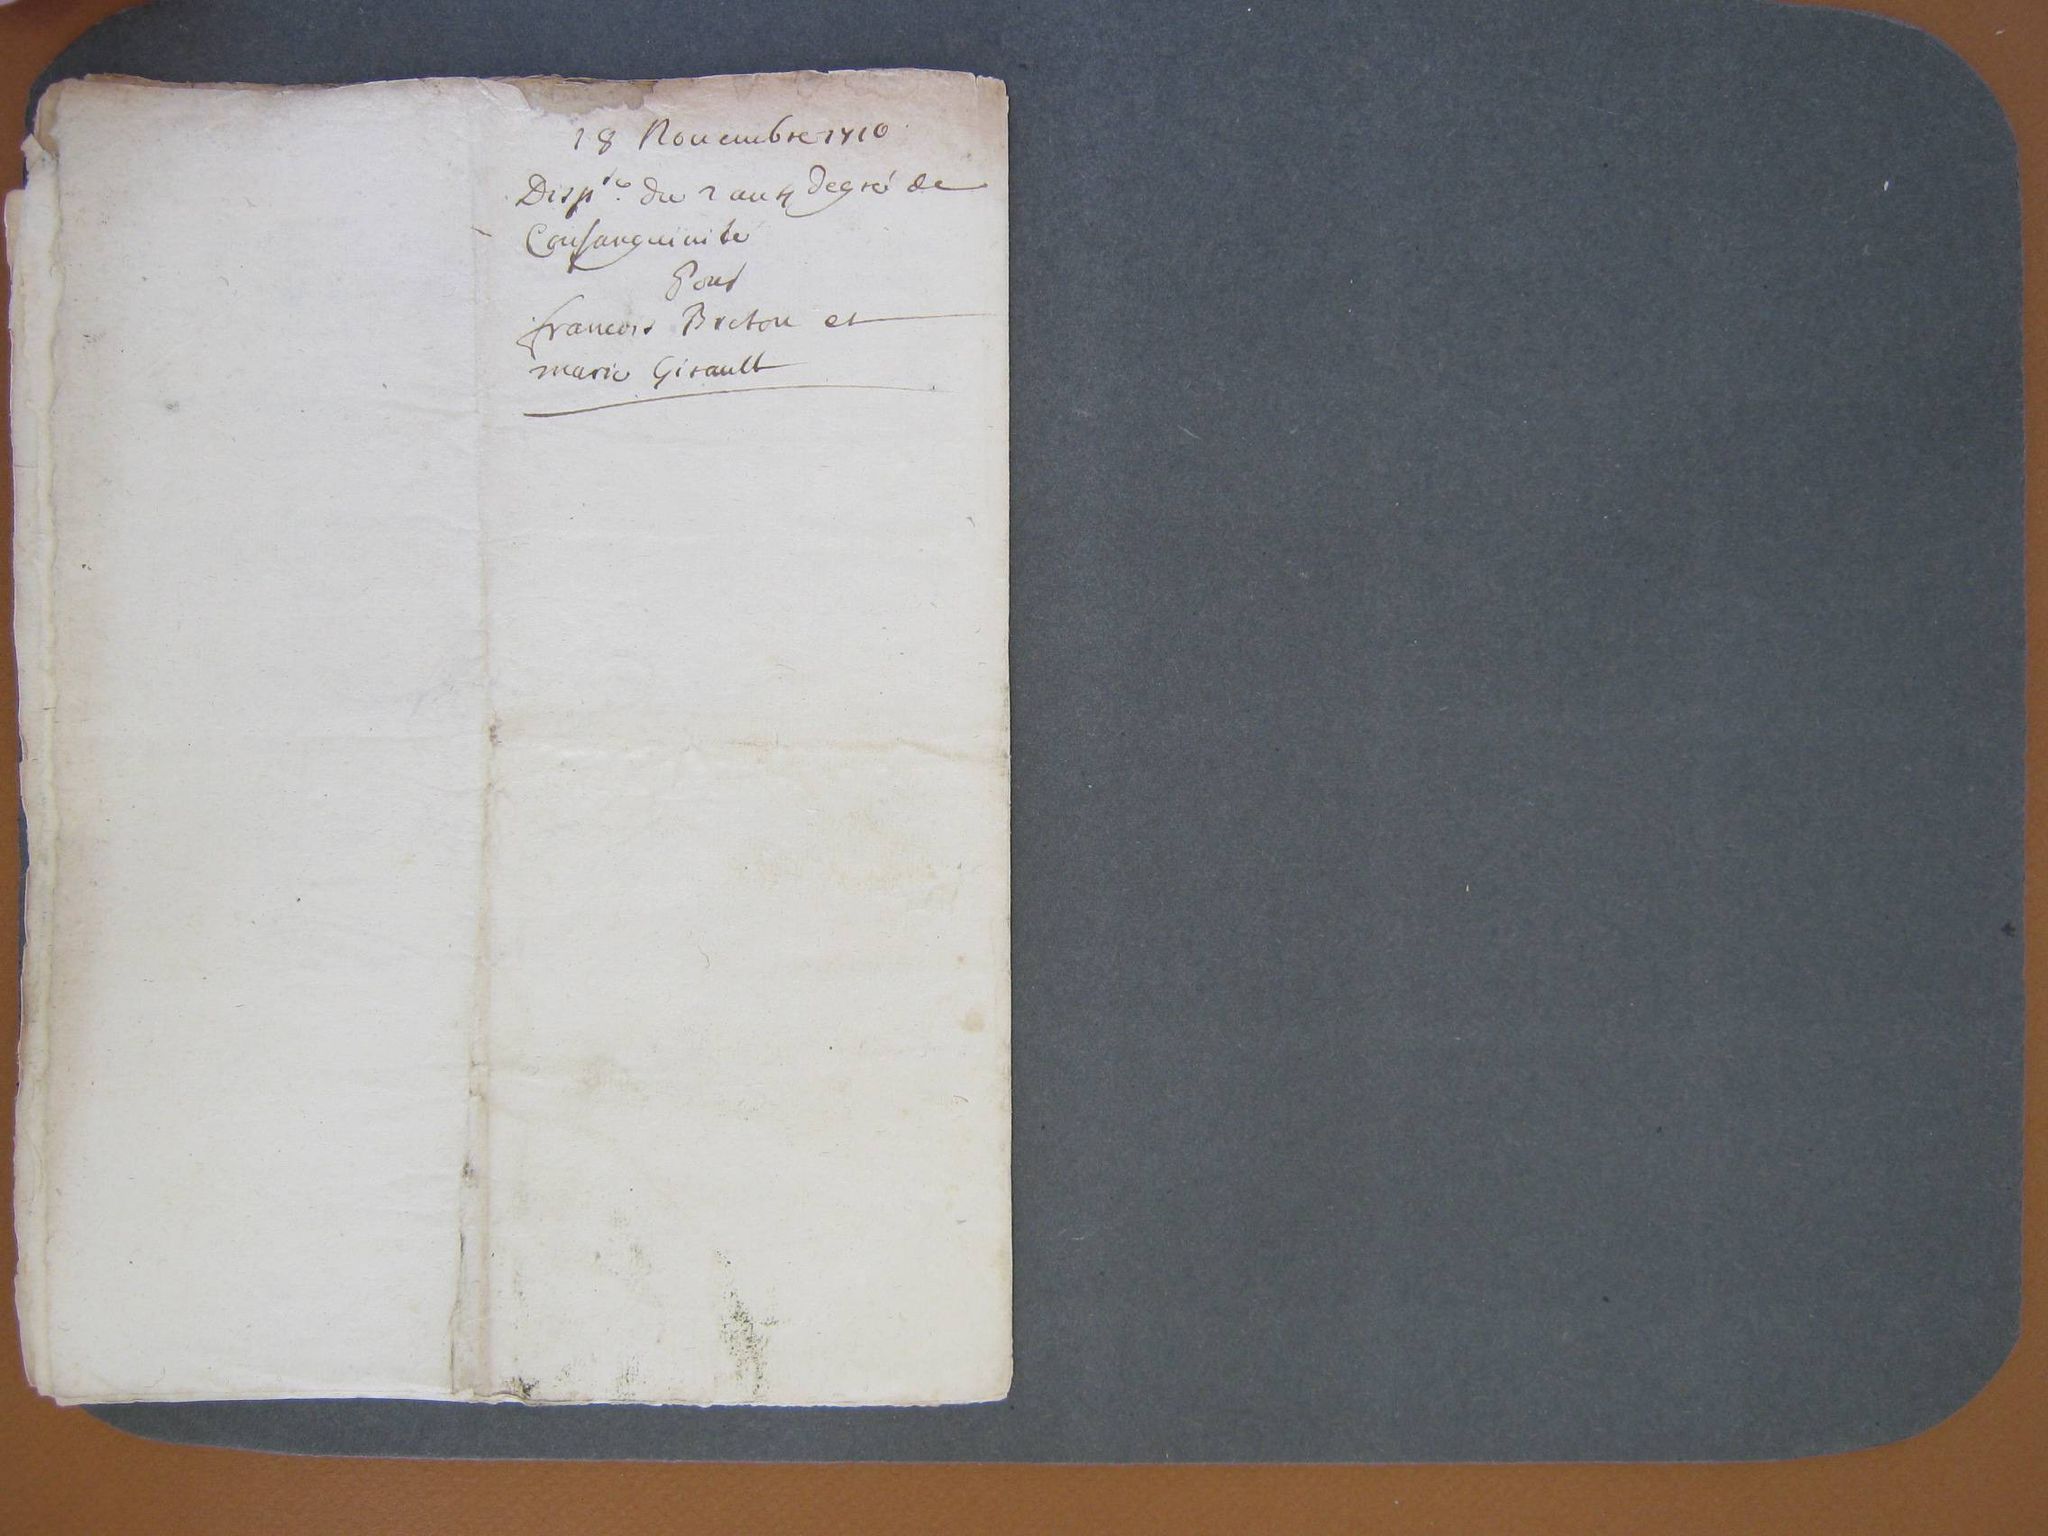 18 Nouembre 1710
Disp.ce du 2 au 4 degré de
Consanguinité
Pour
francois Breton et
marie Girault